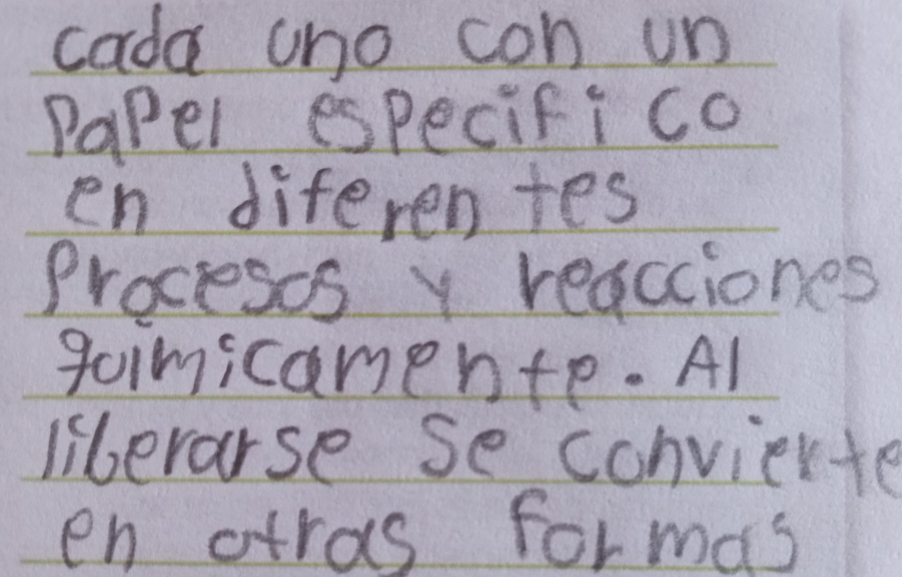 cada uno con un
Papel especifico
en diferentes
Procesos y reacciones
quimicamente. Al
liberarse se convierte
en otras formas